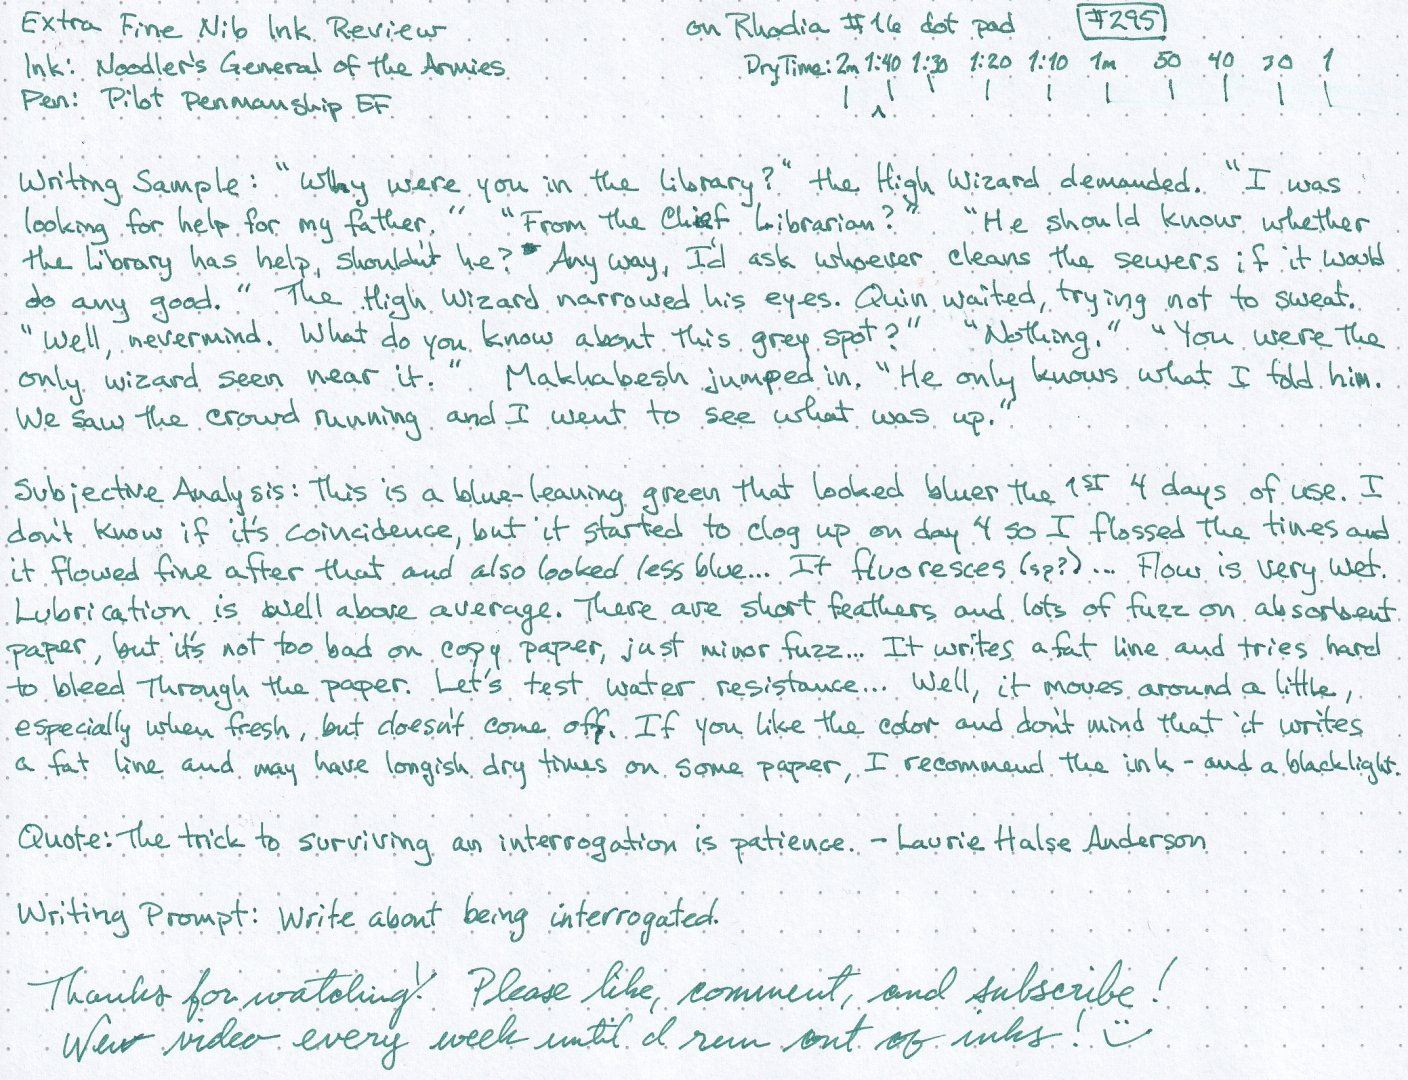 Extra Fine Nib Ink Review on Rhodia #16 dot pad #295
Ink: Noodler's General of the Armies Dry Time: 2m 1:40 1:30 1:20 1:10 1m 50 40 30 1
Pen: Pilot Penmanship EF
Writing Sample: "Why were you in the library?" the High Wizard demanded. "I was
looking for help for my father." "From the Chief Librarian?" "He should know whether
the library has help, shouldn't he? Any way, I'd ask whoever cleans the sewers if it would
do any good." The High Wizard narrowed his eyes. Quin waited, trying not to sweat.
"Well, nevermind. What do you know about this grey spot?" "Nothing." "You were the
only wizard seen near it." Makhabesh jumped in. "He only knows what I told him.
We saw the crowd running and I went to see what was up."
Subjective Analysis: This is a blue-leaning green that looked bluer the 1ST 4 days of use. I
don't know if it's coincidence, but it started to clog up on day 4 so I flossed the tines and
it flowed fine after that and also looked less blue... It fluoresces (sp?)... Flow is very wet.
Lubrication is well above average. There are short feathers and lots of fuzz on absorbent
paper, but it's not too bad on copy paper, just minor fuzz... It writes a fat line and tries hard
to bleed through the paper. Let's test water resistance... Well, it moves around a little,
especially when fresh, but doesn't come off. If you like the color and don't mind that it writes
a fat line and may have longish dry times on some paper, I recommend the ink - and a blacklight.
Quote: The trick to surviving an interrogation is patience. - Laurie Halse Anderson
Writing Prompt: Write about being interrogated.
Thanks for watching! Please like, comment, and subscribe!
New video every week until I run out of inks!